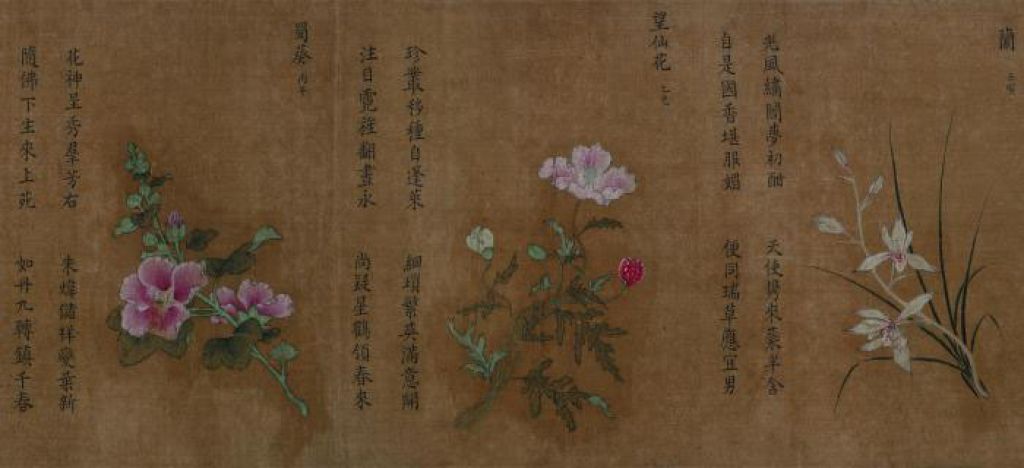 蘭
光風繡閣夢初酣 天使携來蘂半含
自是國香堪服媚 便同瑞草應宜男
望仙花 乙巳
珍叢移種自蓬萊 細瑣繁英滿意開
注目霓旌翻晝永 尚疑星鶴領春來
蜀葵 丙午
花神呈秀羣芳右 朱煒儲祥變葉新
隨佛下生來上苑 如丹九轉鎮千春